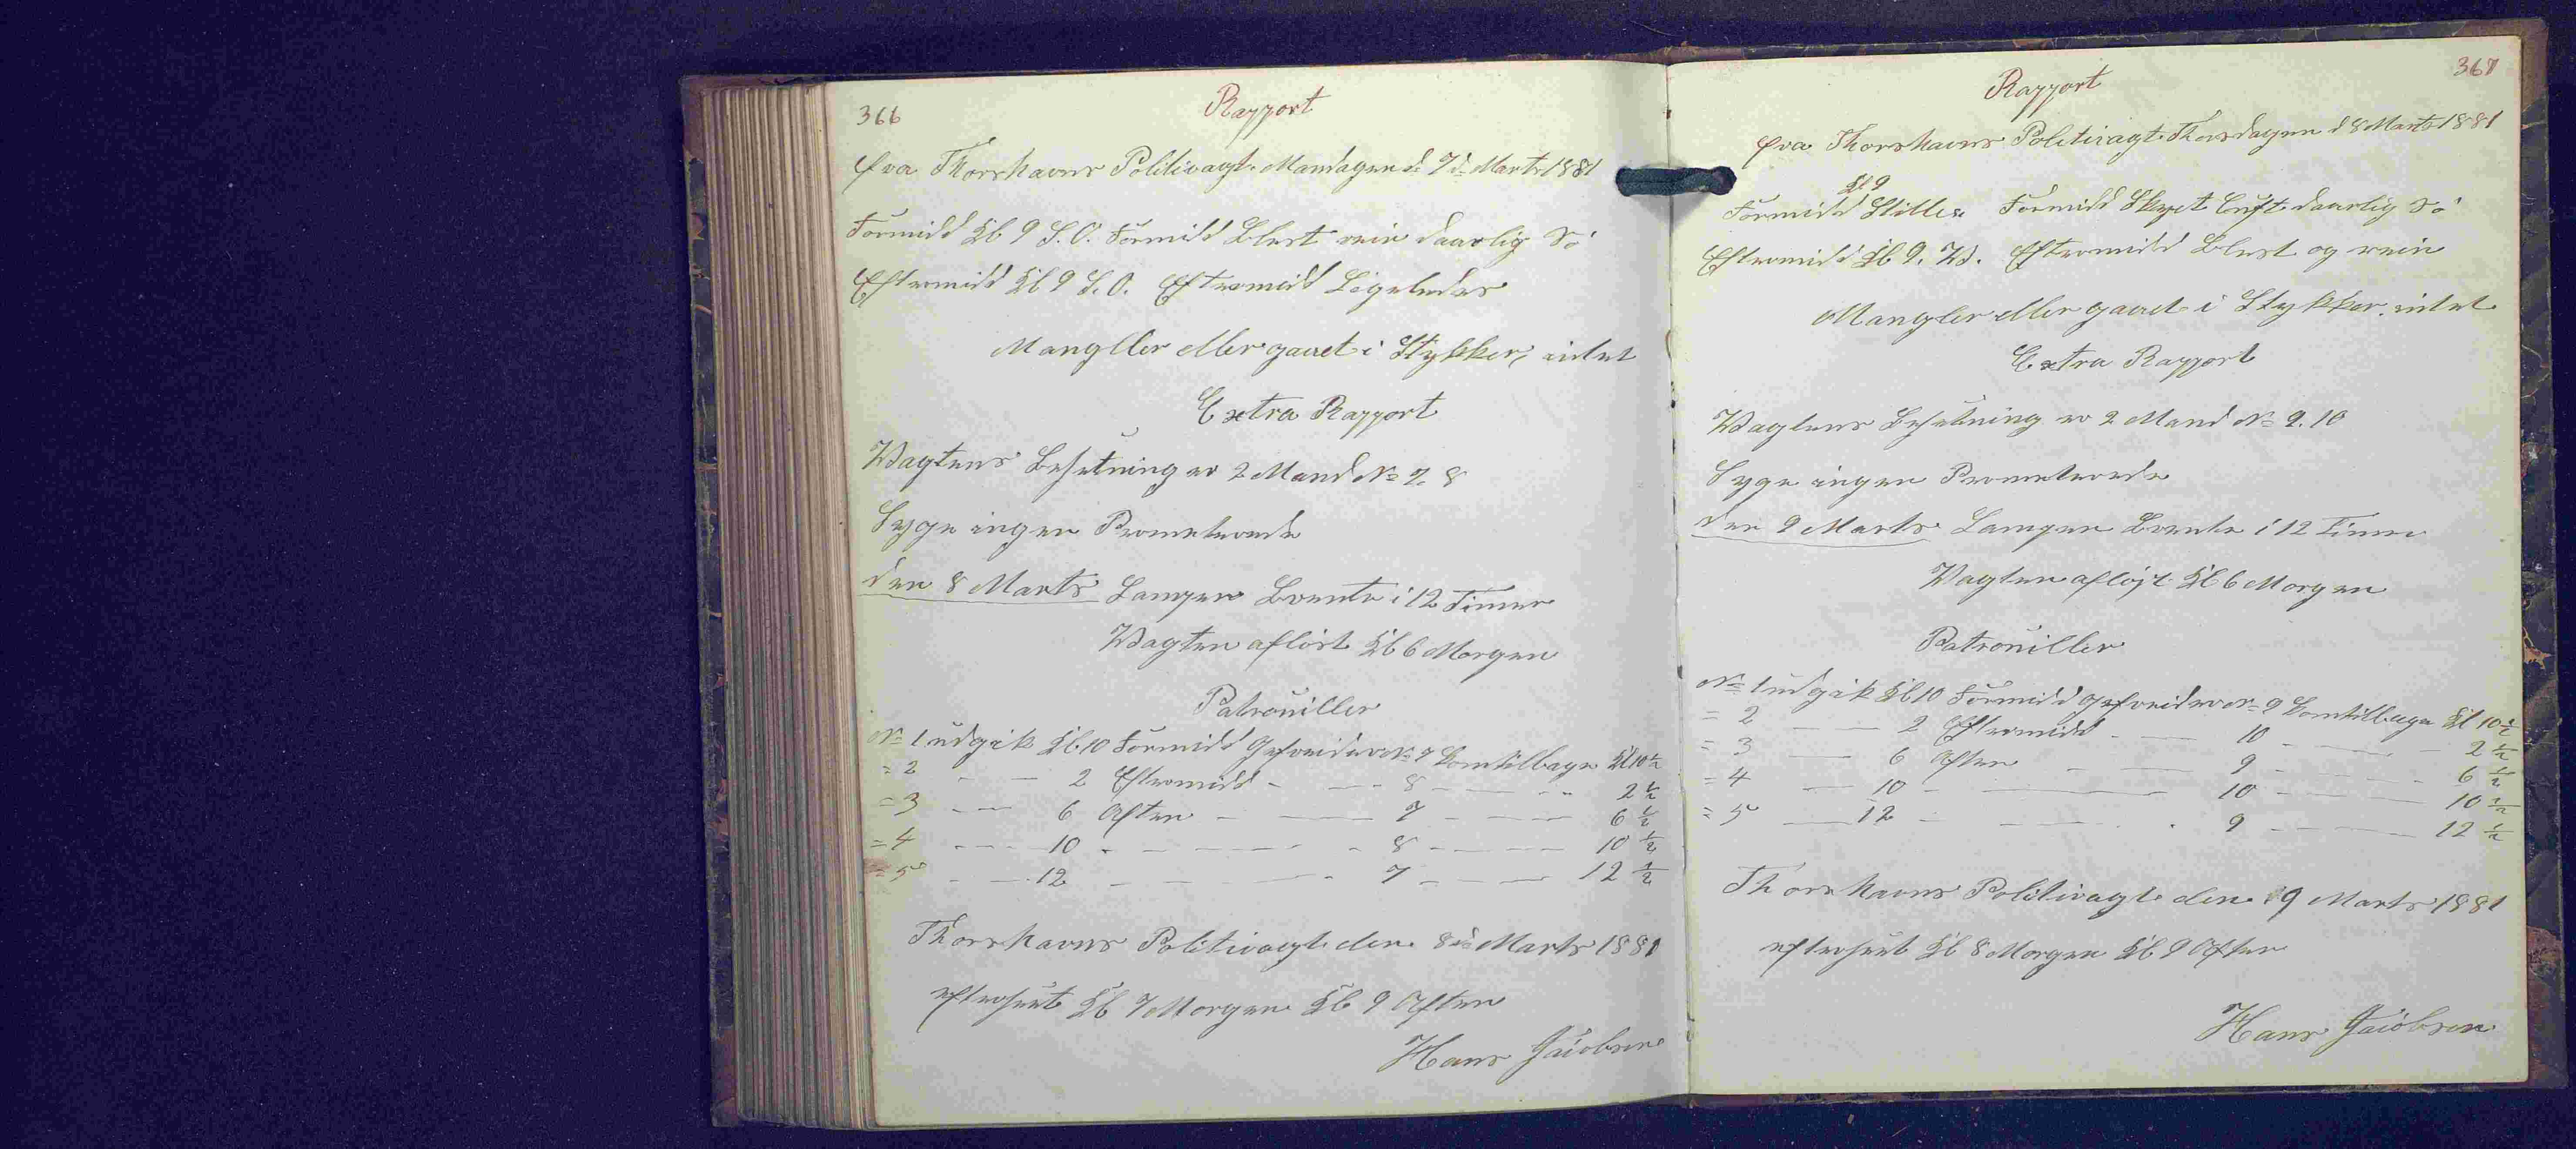 366
Rapport
fra Thorshavns Politivagt Mandagen d. 7de Marts 1881
Formidd Kl 9 S.O. Formidd Blest rein daarlig Sö
Eftermidd Kl 9 S.O. Eftermidd Ligeledes
Mangller eller gaaet i Stykker, intet
Extra Rapport
Wagtens Besetning er 2 Mand No 7. 8
Syge ingen Permeterede
den 8 Marts Lampen Brente i 12 Timer
Wagten aflöst Kl 6 Morgen
Patrouiller
No 1 udgik Kl. 10 Formidd Gefreider No 7 kom tilbage Kl 10 1/2
= 2 — — 2 Eftermidd - — 8 — — 2 1/2
= 3 — — 6 Aften — — 7 — — 6 1/2
= 4 — — 10 - — — 8 — — 10 1/2
= 5 — — 12 — — — 7 — — 12 1/2
Thorshavns Politivagt den 8de Marts 1881
efterseet Kl 7 Morgen Kl 9 Aften
Hans Jacobsen
367
Rapport
fra Thorshavns Politivagt Thorsdagen d 8 Marts 1881
Kl 9
Formidd Stille. Formidd Skyet Luft daarlig Sö
Eftermidd Kl 9. W. Eftermidd Blest og rein
Mangler eller gaaet i Stykker. intet
Extra Rapport
Wagtens Besetning er 2 Mand No 9. 10
Syge ingen Permeterede
den 9 Marts Lampen Brente i 12 Timer
Vagten afløst Kl 6 Morgen
Patrouiller
No 1 udgik Kl 10 Formidd Gefreider No 9 kom tilbage Kl 10 1/2
= 2 — — 2 Eftermidd - — 10 - — 2 1/2
= 3 — 6 Aften - — 9 - — 6 1/2
= 4 — 10 - — 10 - — 10 1/2
= 5 — 12 - — 9 - — 12 1/2
Thorshavns Politivagt den 9 Marts 1881
efterseet Kl 8 Morgen Kl 9 Aften
Hans Jacobsen